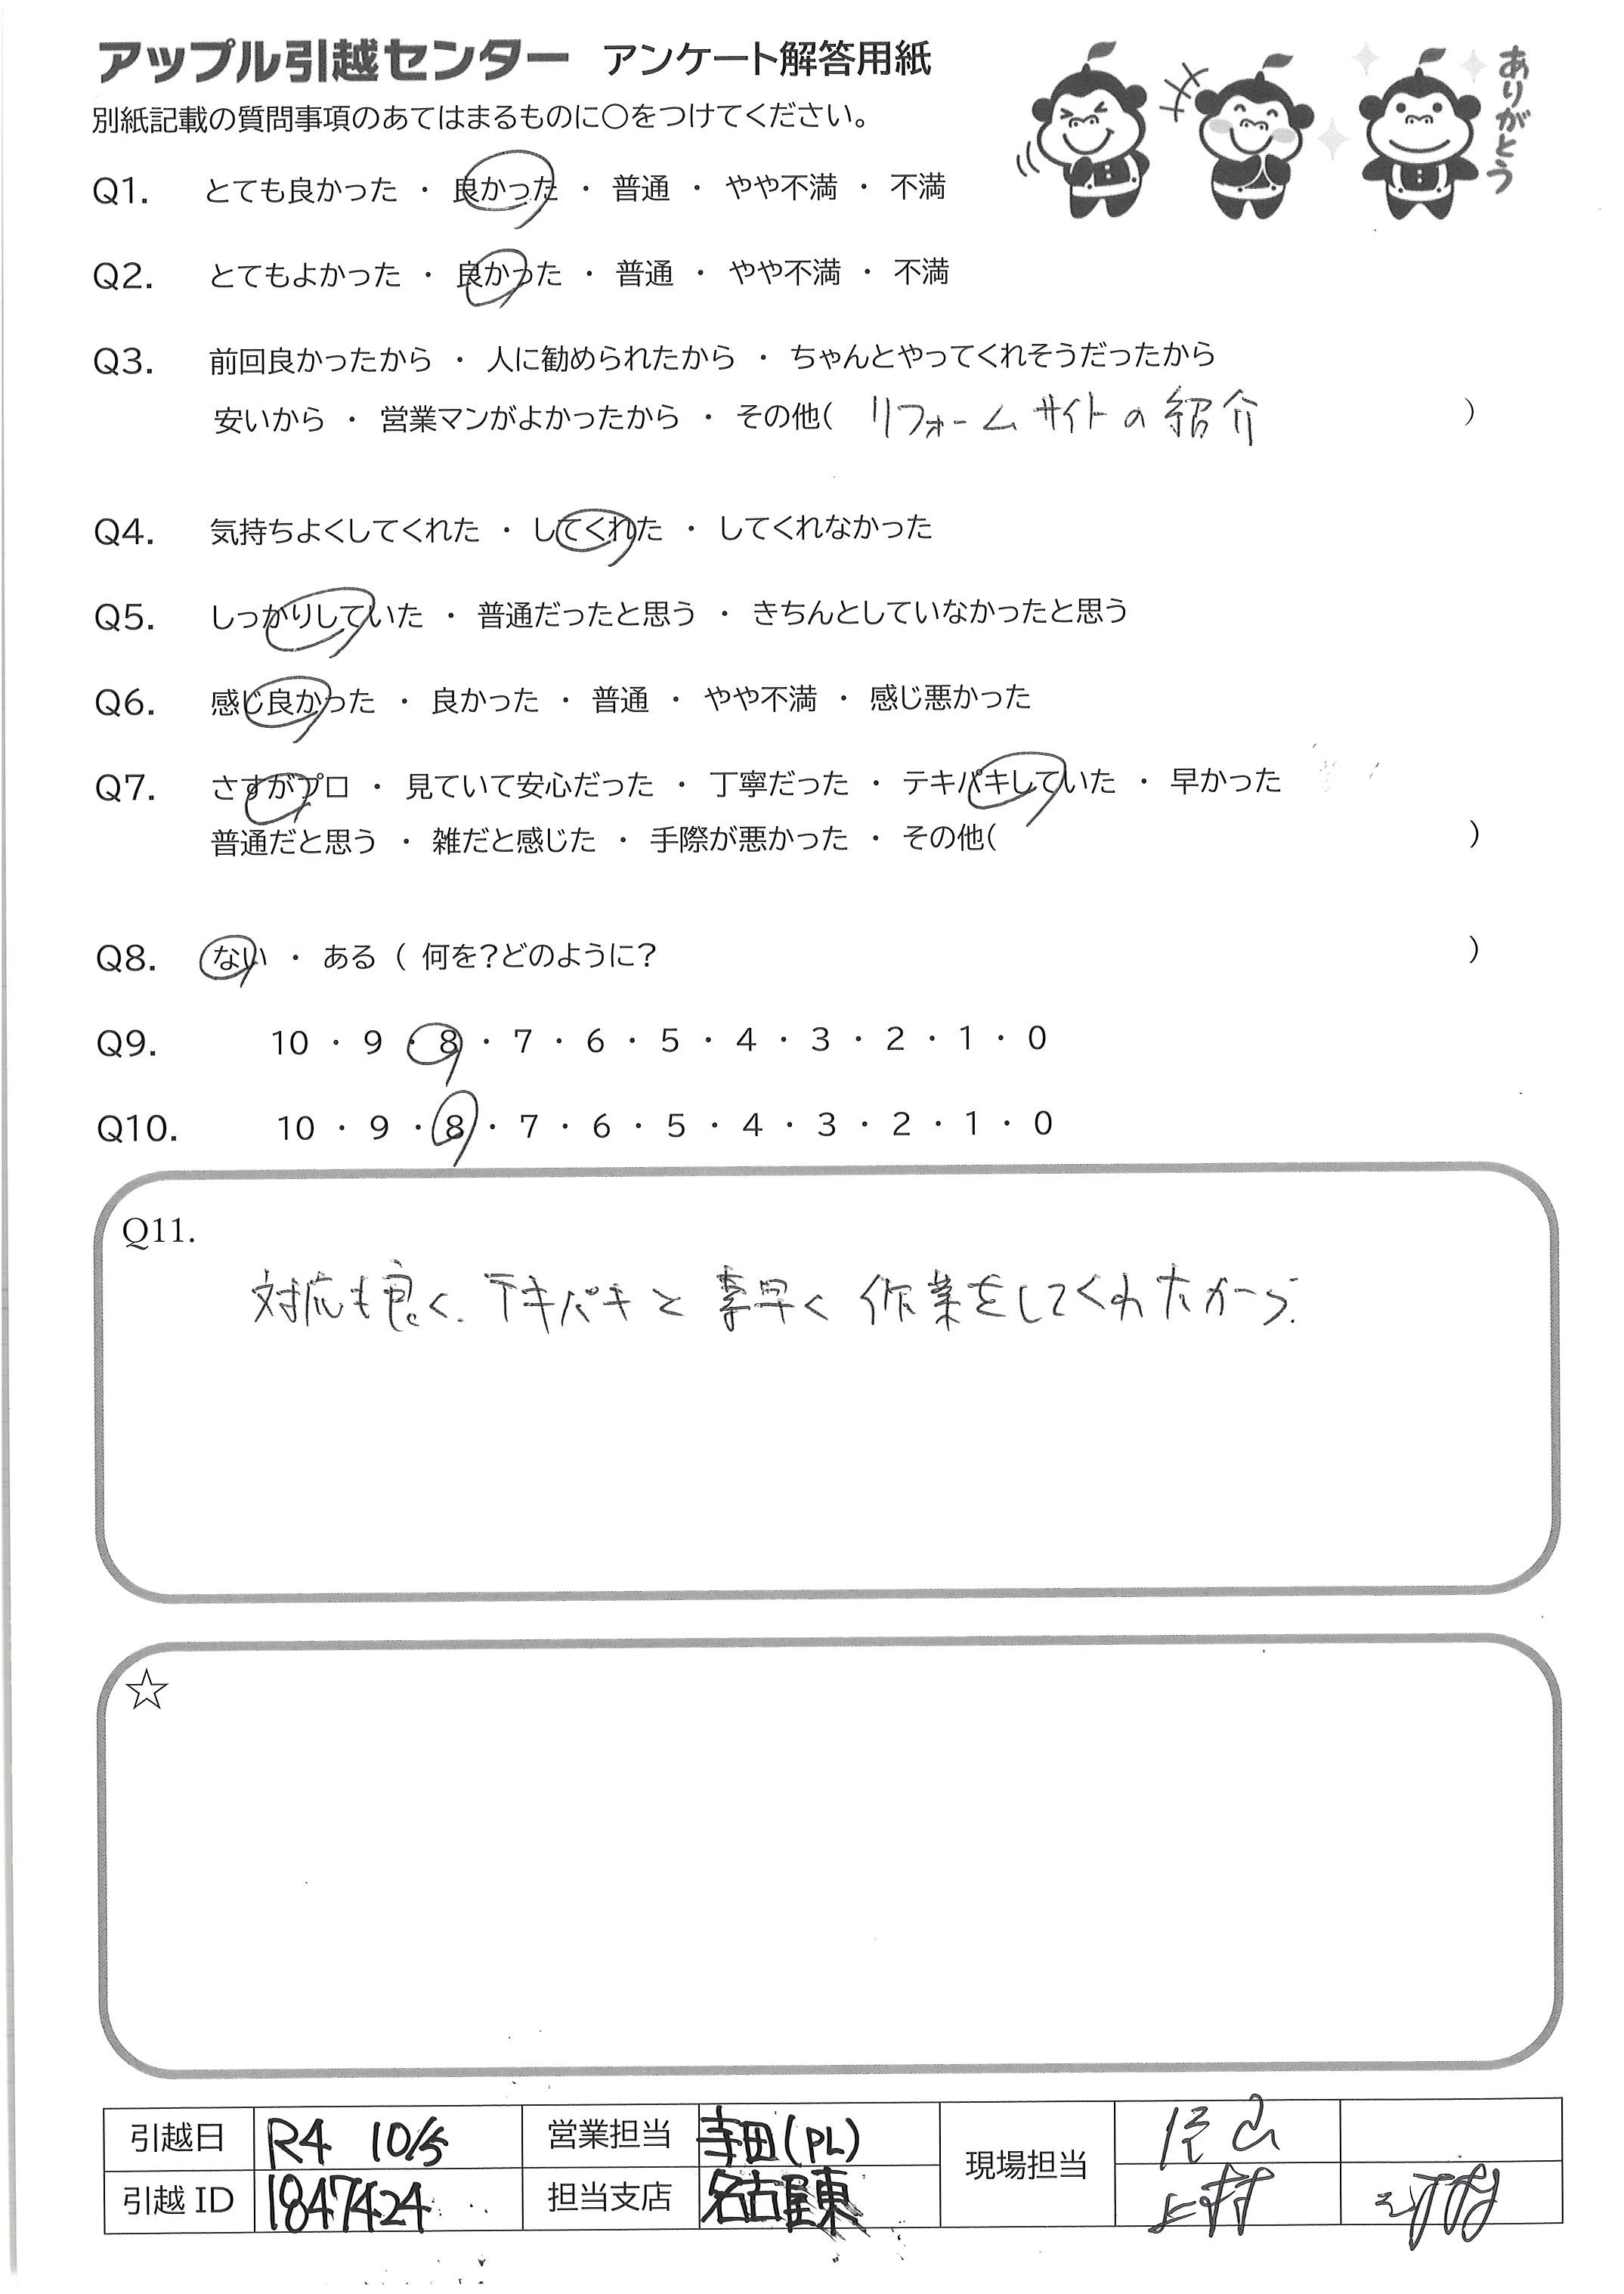 アップル引越センター アンケート解答用紙
ありがとう
別紙記載の質問事項のあてはまるものに〇をつけてください。
Q1. とても良かった ・ 良かった ・ 普通 ・ やや不満 ・ 不満
Q2. とてもよかった ・ 良かった ・ 普通 ・ やや不満 ・ 不満
Q3. 前回良かったから ・ 人に勧められたから ・ ちゃんとやってくれそうだったから
安いから ・ 営業マンがよかったから ・ その他( リフォームサイトの紹介 )
Q4. 気持ちよくしてくれた ・ してくれた ・ してくれなかった
Q5. しっかりしていた ・ 普通だったと思う ・ きちんとしていなかったと思う
Q6. 感じ良かった ・ 良かった ・ 普通 ・ やや不満 ・ 感じ悪かった
Q7. さすがプロ ・ 見ていて安心だった ・ 丁寧だった ・ テキパキしていた ・ 早かった
普通だと思う ・ 雑だと感じた ・ 手際が悪かった ・ その他( )
Q8. ない ・ ある ( 何を?どのように? )
Q9. 10 ・ 9 ・ 8 ・ 7 ・ 6 ・ 5 ・ 4 ・ 3 ・ 2 ・ 1 ・ 0
Q10. 10 ・ 9 ・ 8 ・ 7 ・ 6 ・ 5 ・ 4 ・ 3 ・ 2 ・ 1 ・ 0
Q11.
対応も良く、テキパキと素早く作業をしてくれたから。
☆
引越日 R4 10/5 営業担当 寺田(PL) 現場担当
引越ID 1847424 担当支店 名古屋東 上村